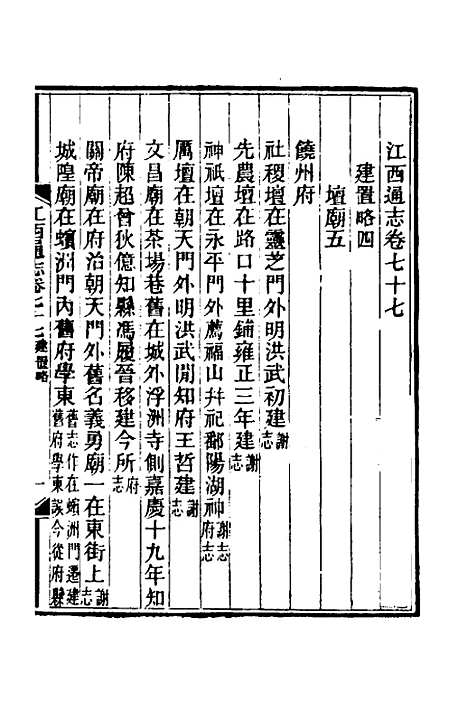 江西通志卷七十七
建置略四
壇廟五
饒州府
社稷壇在靈芝門外明洪武初建謝志
先農壇在路口十里鋪雍正三年建謝志
神祇壇在永平門外薦福山幷祀鄱陽湖神謝志府志
厲壇在朝天門外明洪武閒知府王哲建謝志
文昌廟在茶場巷舊在城外浮洲寺側嘉慶十九年知
府陳超曾狄億知縣馮履晉移建今所府志
關帝廟在府治朝天門外舊名義勇廟一在東街上謝志
城隍廟在蠙洲門內舊府學東舊志作在蠙洲門遷建舊府學東誤今從府縣
江西通志卷七十七 建置略 一